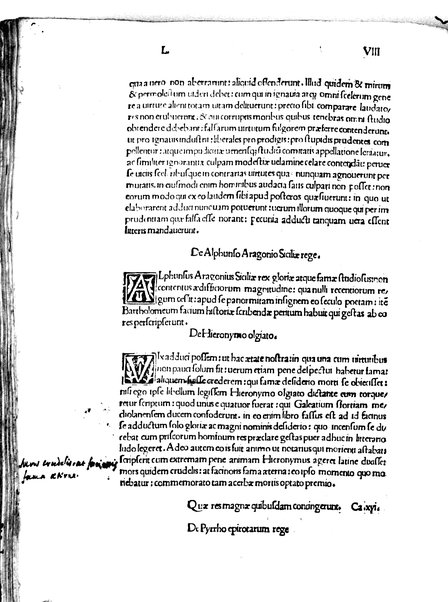 L. VIII
qua a uero non aberrarunt: aliquid offenderunt. Illud quidem & mirum
& permolestum uideri debet: cum qui in ignauia atq; omni scelerum gene
re a uirture alieni totam uitam deliuerunt: precio sibi comparare laudato
res non erubuerunt. & qui corruptis moribus quibus tenebras omni studio
obtendere debebant: falsarum uirtutum fulgorem præferre contenderunt.
ut pro ignauis industrii: liberales pro prodigis: pro stupidis prudentes com
pellentur: atque impudicitiæ
ac similiter ignorantiæ culpam modestiæ uelamine celare contendāt: peruer
se uicis scelatibusque in contrarias uirtutes qua nunquam agnouerunt per
mutatis. in eiusmodi enim hominibus audacia satis culpari non posset: non
eorum modo qui ex eo laudem sibi apud posteros quæsiuerunt: in quo ut
elaborarent adduci nuncuam potuerunt: uerum illorum quoque qui per im
prudentiam quæ falsa esse norant: pecunia adducti tanquam uera essent
litteris mandauerunt.
De Alphunso Aragonio Siciliæ rege.
ALphunsus Aragonius Siciliæ rex gloriæ atque famæ studiosus: non
contentus ædificiorum magnitudine: qua nulli recentiorum re
gum cessit: apud se panormitam insignem eo seculo poetam: itē
Bartholomeum facium historiæ scribendæ peritum habuit qui gestas ab eo
res perscripserunt.
De Hieronymo olgiato.
VIx adduci possem: ut hac ætate nostra: in qua una cum uirtutibus
non pauci solum sit: uerum etiam pene despectui habetur fama:
aliquem fuisse crederem: qui famæ desiderio morti se obiecisset:
nisi ego ipse libellum legissem Hieronymo olgiato dictante cum torque
retur scriptum: quod unus e quatuor fuerat: qui Galeatium sfortiam me
diolanensem ducem confoderunt. in eo enim libro fassus est ad id facinus
se adductum solo gloriæ ac magni nominis desiderio: quo incensum se du
cebat cum priscorum hominum res præclare gestas puer adhuc in litterario
ludo legeret. Adeo autem eo is fuit animo ut notarius qui morienti astabat:
scripserit cum extremam pene animam Hieronymus ageret latine dixisset
mors quidem crudelis: at facinoris fama æterna: eo ipso momento quo mo
riebatur: commemorato tam acerbæ mortis optato premio.
mors crudelis at facinoris
fama æterna
Quæ res magnæ quibusdam contingerunt. Ca.xyi.
De Pyrrho epirotarum rege